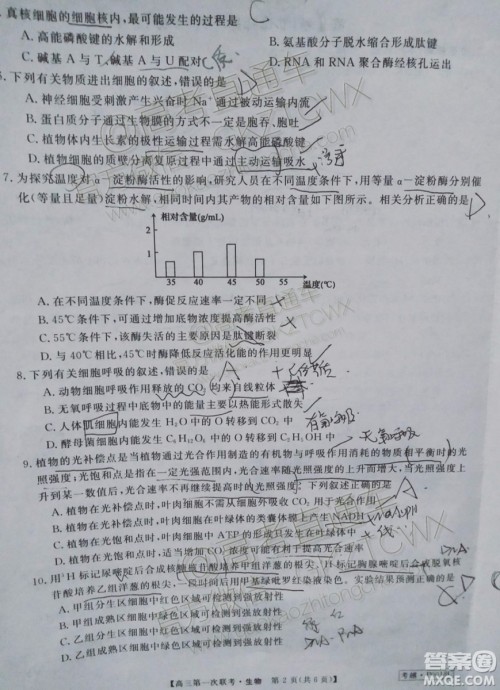 真核细胞的细胞核内,最可能发生的过程是 C
A. 高能磷酸键的水解和形成 B. 氨基酸分子脱水缩合形成肽键
C. 碱基 A 与 T、碱基 A 与 U 配对 D. RNA 和 RNA 聚合酶经核孔运出
下列有关物质进出细胞的叙述,错误的是 D
A. 神经细胞受刺激产生兴奋时 Na⁺ 通过被动运输内流
B. 蛋白质分子通过生物膜的方式不一定是胞吞、胞吐
C. 植物体内生长素的极性运输过程需水解高能磷酸键
D. 植物细胞的质壁分离复原过程中通过主动运输吸水
7. 为探究温度对 α-淀粉酶活性的影响,研究人员在不同温度条件下,用等量 α-淀粉酶分别催
化(等量且足量)淀粉水解,相同时间内其产物的相对含量如下图所示。相关分析正确的是 D
相对含量(g/mL)
2
1
35 40 45 50 55 温度(℃)
A. 在不同温度条件下,酶促反应速率一定不同
B. 45℃条件下,可通过增大底物浓度提高酶活性
C. 55℃条件下,该酶失活的主要原因是肽键断裂
D. 与 40℃相比,45℃时酶降低反应活化能的作用更明显
8. 下列有关细胞呼吸的叙述,错误的是 A
A. 动物细胞呼吸作用释放的 CO₂ 均来自线粒体
B. 无氧呼吸过程中底物中的能量主要以热能形式散失
C. 人体肌细胞内能发生 H₂O 中的 O 转移到 CO₂ 中
D. 酵母菌细胞内能发生 C₆H₁₂O₆ 中的 O 转移到 C₂H₅OH 中
9. 植物的光补偿点是指植物通过光合作用制造的有机物与呼吸作用消耗的物质相平衡时的光
照强度,光饱和点是指在一定光强范围内,植物的光合速率随光照强度的上升而增大,当光照强度上
升到某一数值后,光合速率不再继续提高时的光照强度。下列叙述正确的是 A
A. 植物在光补偿点时,叶肉细胞不需从细胞外吸收 CO₂
B. 植物在光补偿点时,叶肉细胞中在叶绿体的类囊体膜上发生 NADH
C. 植物在光饱和点时,叶肉细胞中 ATP 的形成只发生在叶绿体
D. 植物在光饱和点时,适当提高
10. 用 ³H 标记尿嘧啶后合成核糖核苷酸培养甲组洋葱的根尖,³H 标记胸腺嘧啶后合成脱氧核
苷酸培养乙组洋葱的根尖,一段时间后用甲基绿吡罗红染液染色。实验结果预测正确的是 D
A. 甲组分生区细胞中红色区域可检测到强放射性
B. 甲组成熟区细胞中绿色区域可检测到强放射性
C. 乙组分生区细胞中红色区域可检测到强放射性
【高三第一次联考·生物 第 2 页(共 8 页)】